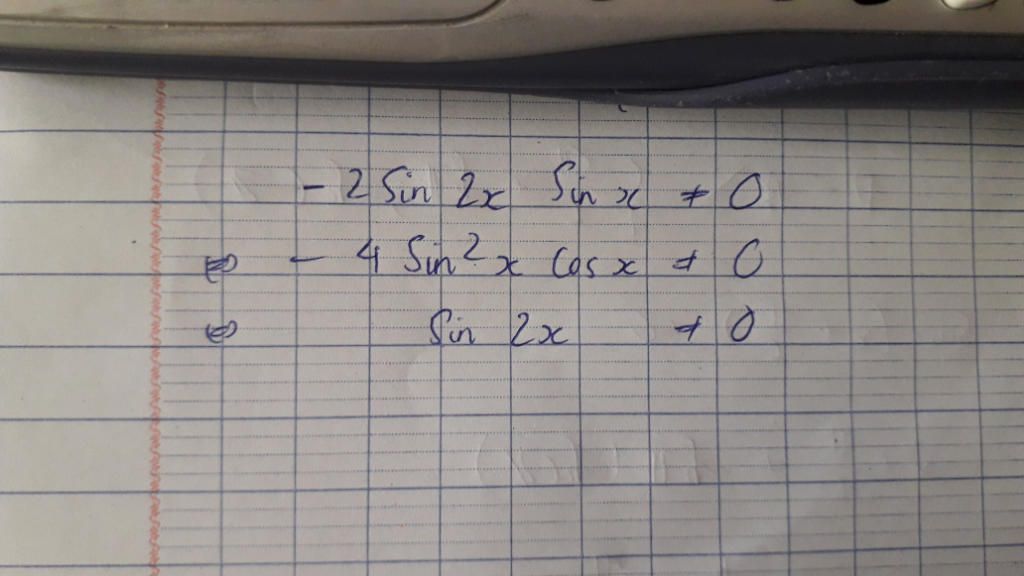 - 2 Sin 2x Sin x ≠ 0
⇔ - 4 Sin² x Cos x ≠ 0
⇔ Sin 2x ≠ 0